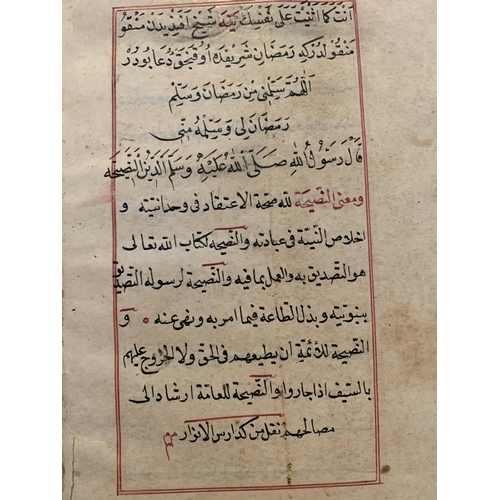 انت كما اثنيت على نفسك يَتِيه شيخ افيد بدن منقو
منقولدركه رمضان شريفده اوقنجق دعا بودر
اللهم سلمنى من رمضان وسلم
رمضان لى وسلمه منى
قال رسول الله صلى الله عليه وسلم الدين النصيحة
ومعنى النصيحة لله صحة الاعتقاد فى وحدانيته و
اخلاص النية فى عبادته والنصيحة لكتاب الله تعالى
هو التصديق به والعمل بما فيه والنصيحة لرسوله التصديق
بنبوتيه وبذل الطاعة فيما امر به ونهى عنه و
النصيحة للأئمة ان يطيعهم فى الحق ولا الخروج عليهم
بالسيف اذا جاروا والنصيحة للعامة ارشاد الى
مصالحهم نقل من كدارس الانوار مم